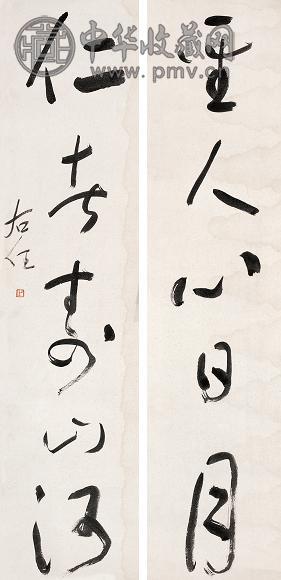 中华收藏网
www.pmv.cn
聖人心日月
仁者壽山河
右任